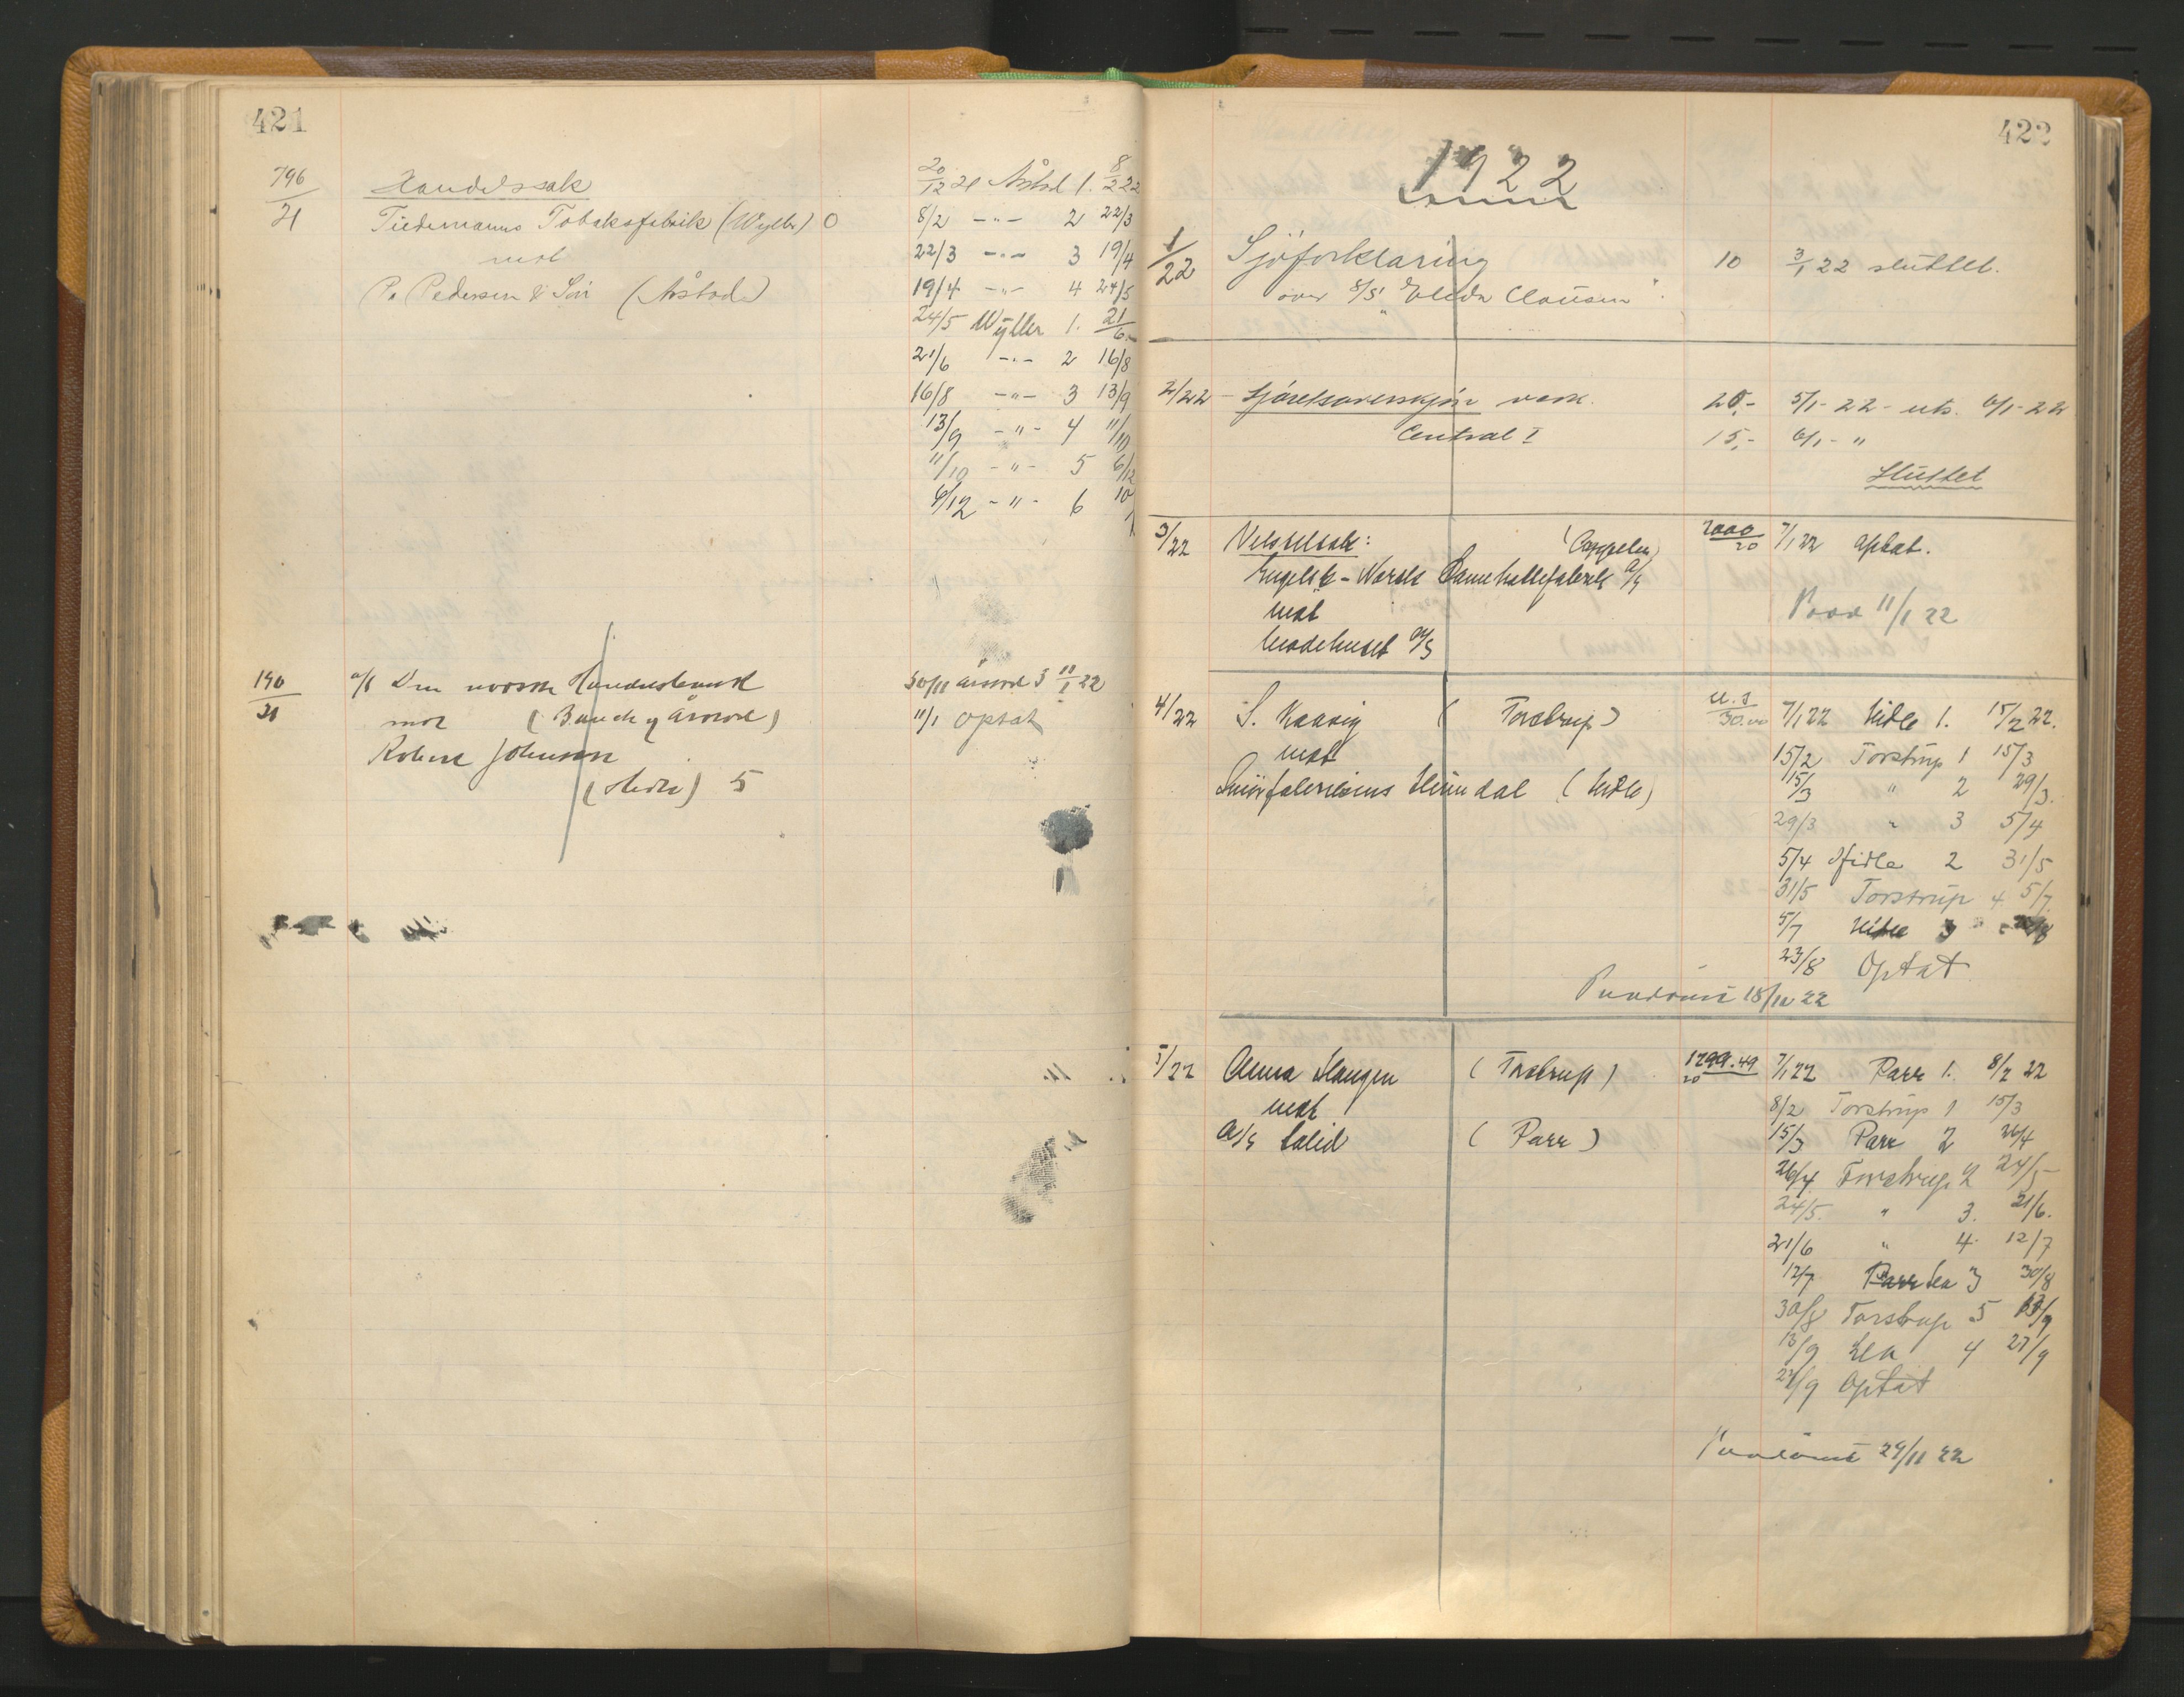 421
796/21 Handelssak 20/12 21 Årstad 1. 8/2 22
Tiedemanns Tobaksfabrik (Wyller) 0 8/2 -"- 2 22/3
mot 22/3 -"- 3 19/4
P. Pedersen & Sön (Årstad) 19/4 -"- 4 24/5
24/5 Wyller 1. 21/6
21/6 -"- 2 16/8
16/8 -"- 3 13/9
13/9 -"- 4 11/10
11/10 -"- 5 6/12
6/12 -"- 6 10/1
190/21 a/s Den norske Handelsbank 30/11 3 11/1 22
mot 11/1 optat
Robert Johnsen
(Hidle) 5
422
1922
1/22 Sjöforklaring 10 3/1 22 sluttet.
over S/S "Elida Clausen"
2/22 - 20,- 5/1-22 - uts. 6/1-22
Central I 15,- 6/1-"
Sluttet
3/22 Vekselsak: (Cappelen) 2000/20 7/1 22 Optat.
Engelsk-Norsk Damehattefabrik A/S
mot 11/1 22
Modehuset A/S
4/22 S. Kaasig (Torstrup) 30.00 7/1 22 Hidle 1. 15/2 22.
mot 15/2 Torstrup 1 15/3
15/3 " 2 29/3.
Heimdal (Hidle)
29/3 " 3 5/4
5/4 Hidle 2 31/5
31/5 Torstrup 4 5/7.
5/7 Hidle 3
23/8 Optat
Paadömt 18/10 22
5/22 Anna Haugen (Torstrup) 1299.49/20 7/1 22 Parr 1. 8/2 22
mot 8/2 Torstrup 1 15/3
A/S Solid (Parr) 15/3 Parr 2 26/4
26/4 Torstrup 2 24/5
24/5. " 3. 21/6.
21/6 " 4. 12/7
12/7 Lea 3 30/8
30/8 Torstrup 5 13/9
13/9 Lea 4 27/9
27/9 Optat
Paadömt 24/11 22